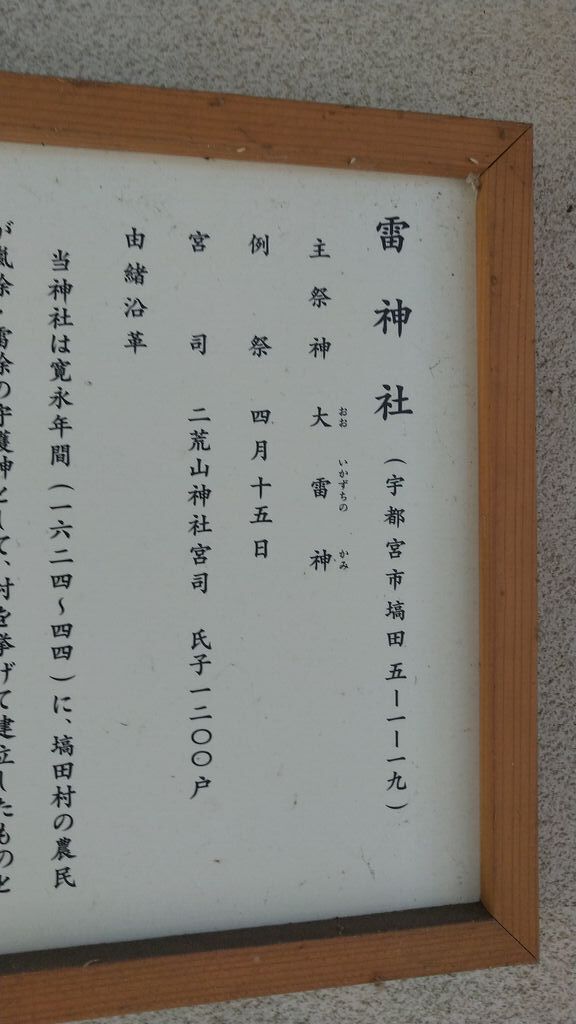 雷神社（宇都宮市塙田五ー一ー一九）
主祭神 大雷神
おお いかずちの かみ
例祭 四月十五日
宮司 二荒山神社宮司 氏子一二〇〇戸
由緒沿革
当神社は寛永年間（一六二四～四四）に、塙田村の農民
が嵐除・雷除の守護神として、村を挙げて建立したものと